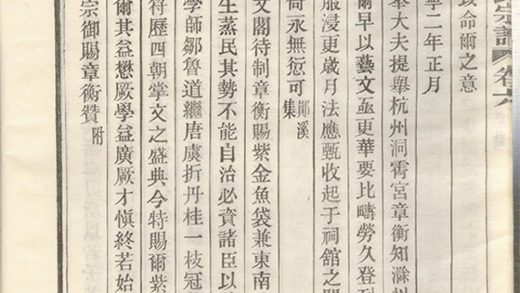 宗譜 卷六
致命爾之意
寧二年正月
奉大夫提舉杭州洞霄宮章衡知滁州
爾早以藝文亟更華要比疇勞久登
服浸更歲月法應甄收起于祠館之
尚永無愆可 鄖溪集
文閣待制章衡賜紫金魚袋兼東南
生蒸民其勢不能自治必資諸臣以
學師鄒魯道繼唐虞折丹桂一枝冠
符歷四朝掌文之盛典今特賜爾紫
爾其益懋厥學益廣厥才愼終若始
宗御賜章衡贊 附